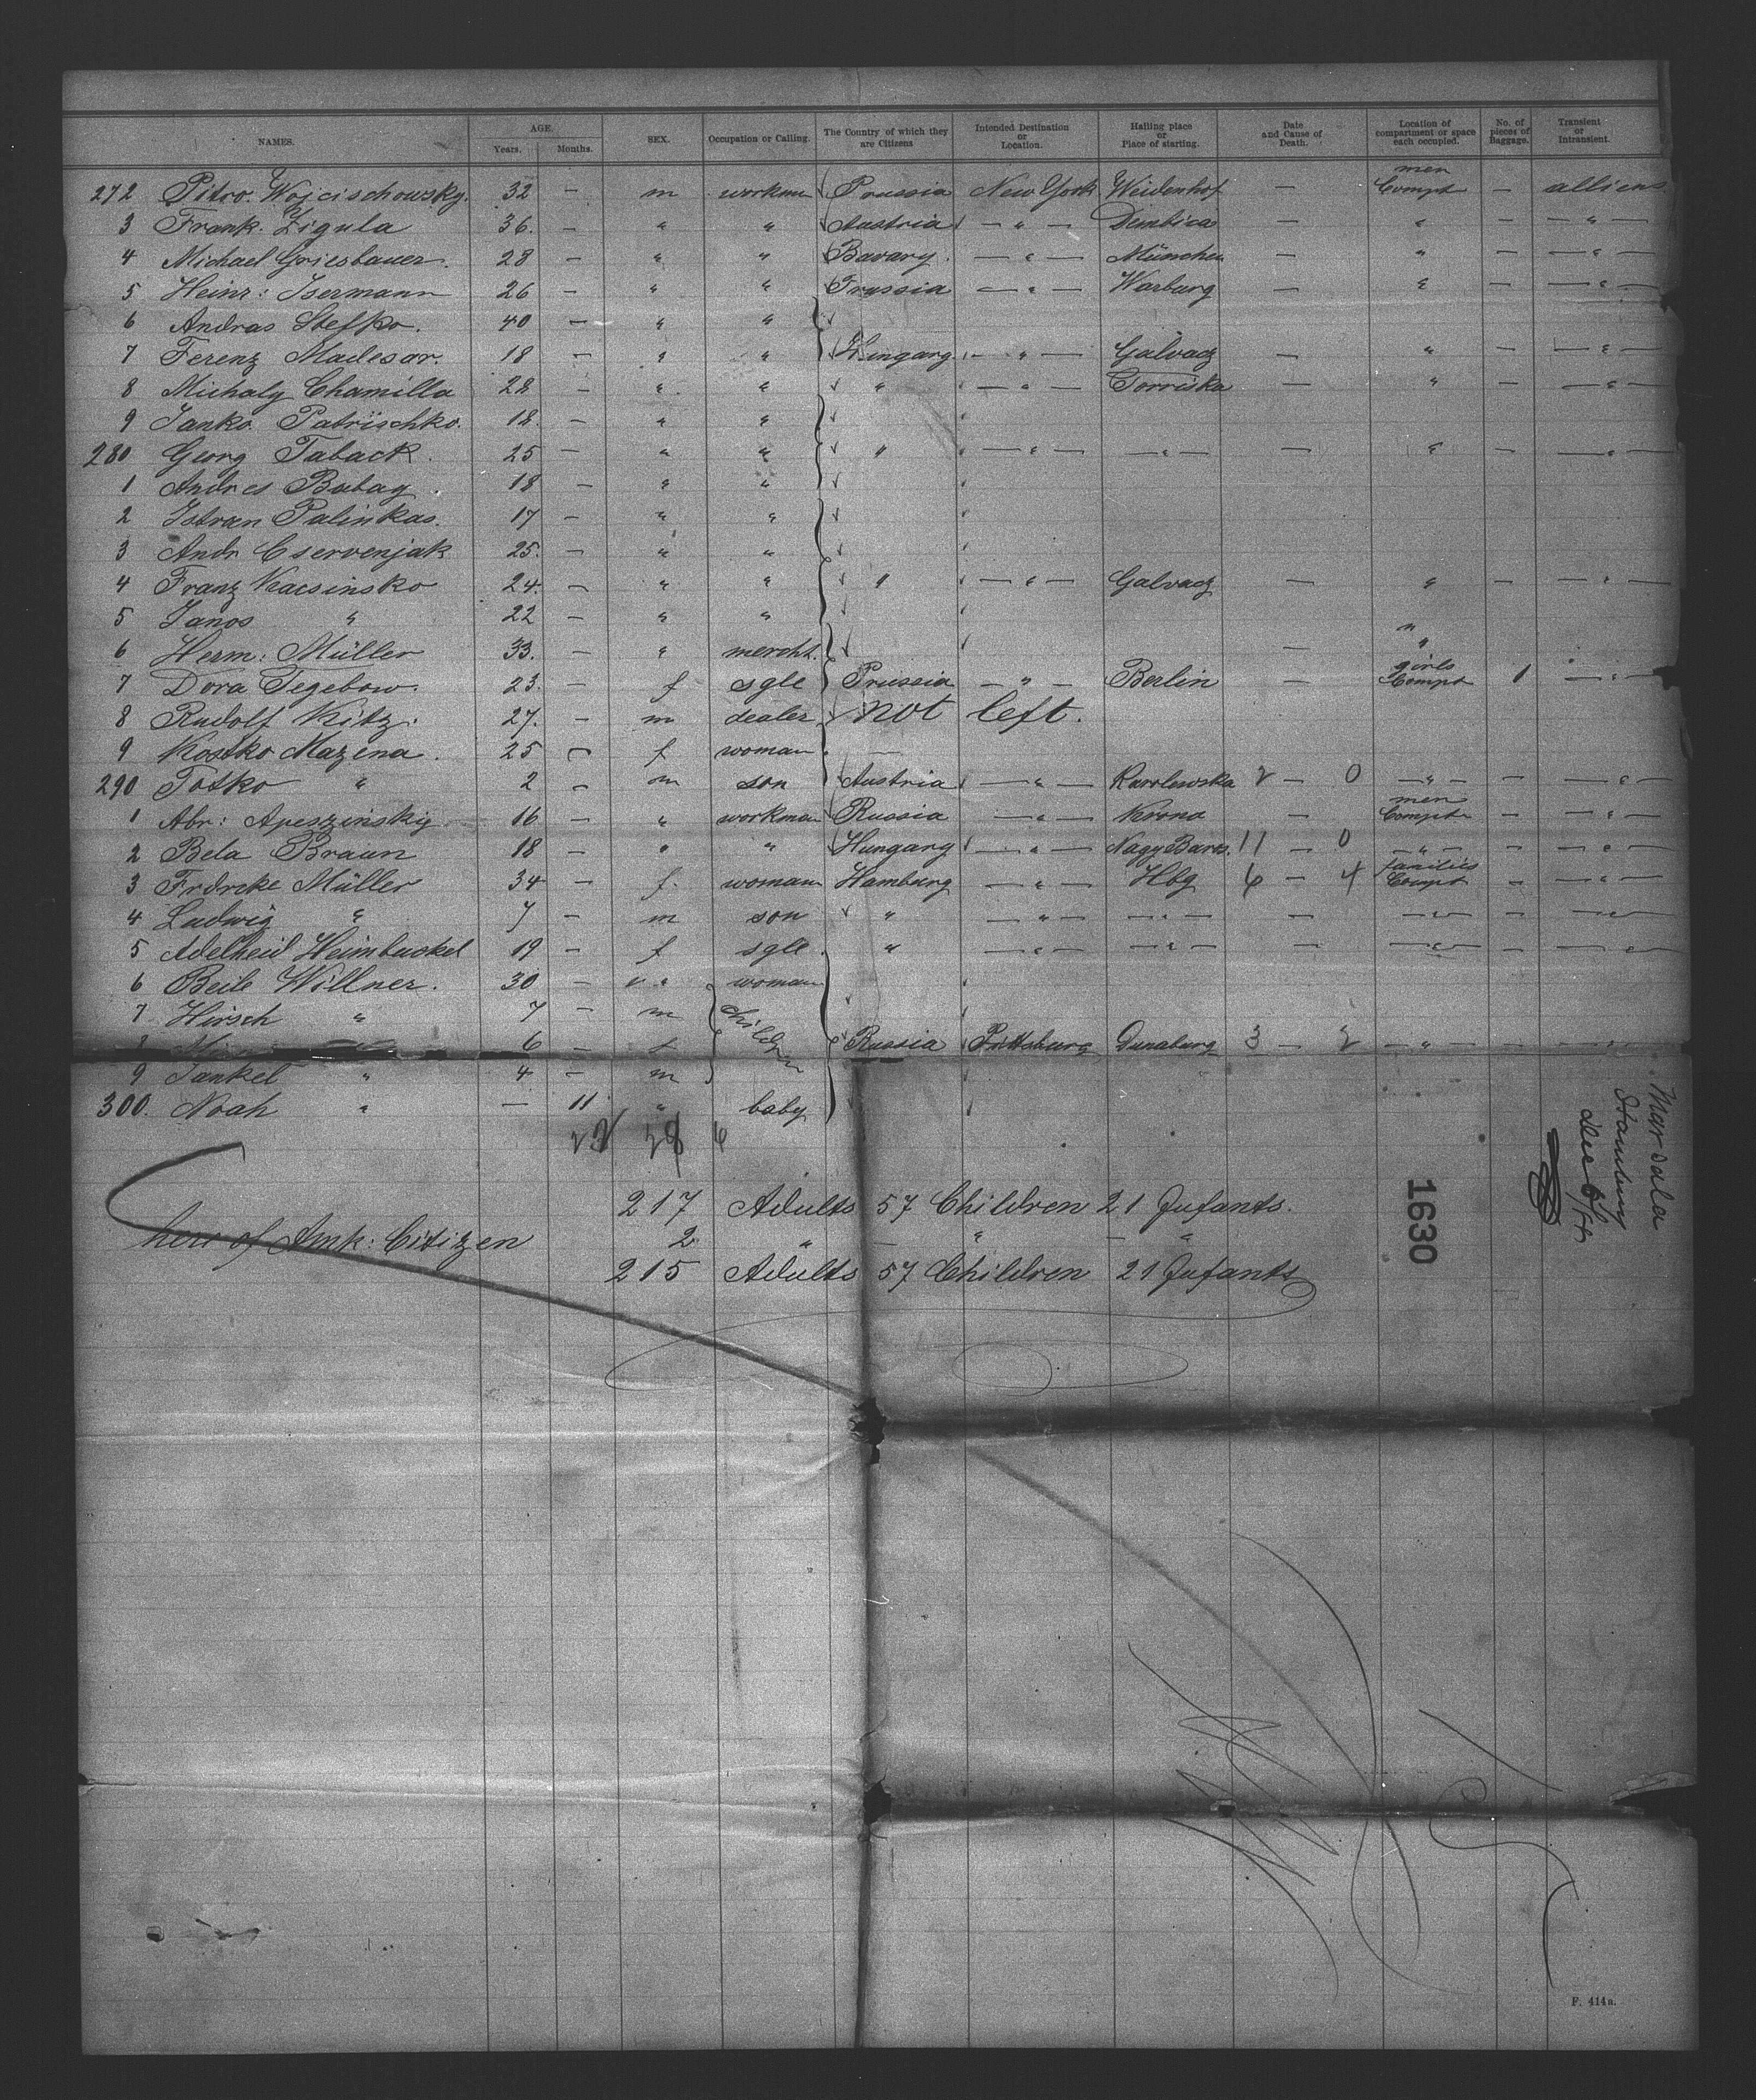 NAMES. AGE. Years. Months. SEX. Occupation or Calling. The Country of which they are Citizens Intended Destination or Location. Hailing place or Place of starting. Date and Cause of Death. Location of compartment or space each occupied. No. of pieces of Baggage. Transient or Intransient.
272 Pitro. Wojcischowsky. 32 — m workman Prussia New York Weidenhof — men Compt — alliens
3 Frank. Zigula 36. — " " Austria — " — Dembica — " — — " —
4 Michael Griesbauer. 28 — " " Bavary. — " — München — " — — " —
5 Heinr: Isermann 26 — " " Prussia — " — Warburg — " — — " —
6 Andras Stefko. 40 — " "
7 Ferenz Madesar. 18 — " " Hungary — " — Galvacz — " — — " —
8 Michaly Chamilla 28 — " " " — " — Torriska — " — — " —
9 Janko Patrischko. 18. — " "
280 Georg Taback. 25 — " " " — " — — " — — " — — " —
1 Andres Babay. 18 — " "
2 Istvan Palinkas. 17 — " "
3 Andr Cservenjak 25. — " "
4 Franz Kacsinsko 24. — " " " — " — Galvacz — " — — " —
5 Janos " 22 — " "
6 Herm: Müller 33. — " mercht. — "
7 Dora Tegebow. 23. — f sgle Prussia — " — Berlin — girls Compt 1 — " —
8 Rudolf Kitz. 27. — m dealer not left.
9 Kostko Mazena. 25 — f woman
290 Totko " 2 — m son Austria — " — Karolewska 2 — 0 — " — — — " —
1 Abr: Apeszinskiy 16 — " workman Russia — " — Krono — men Compt — — " —
2 Bela Braun 18 — " " Hungary — " — Nagy Baros. 11 — 0 — " — — — " —
3 Frdrcke Müller 34 — f. woman Hamburg — " — Hbg 6 — 4 families Compt — — " —
4 Ludwig " 7 — m son " — " — — " — — — " — — — " —
5 Adelheid Heimbuckel 19 — f sgle. " — " — — " — — — " — — — " —
6 Beile Willner. 30 — " woman
7 Hirsch " 7 — m children
8 " 6 — f Russia Pittsburg Dunaburg 3 — 2 — " — — — " —
9 Jankel " 4 — m
300. Noah " — 11 " baby
217 Adults 57 Children 21 Infants.
here of Amk: Citizen 2 " — " — "
215 Adults 57 Children 21 Infants
1630
Marsala
Hamburg
F. 414a.